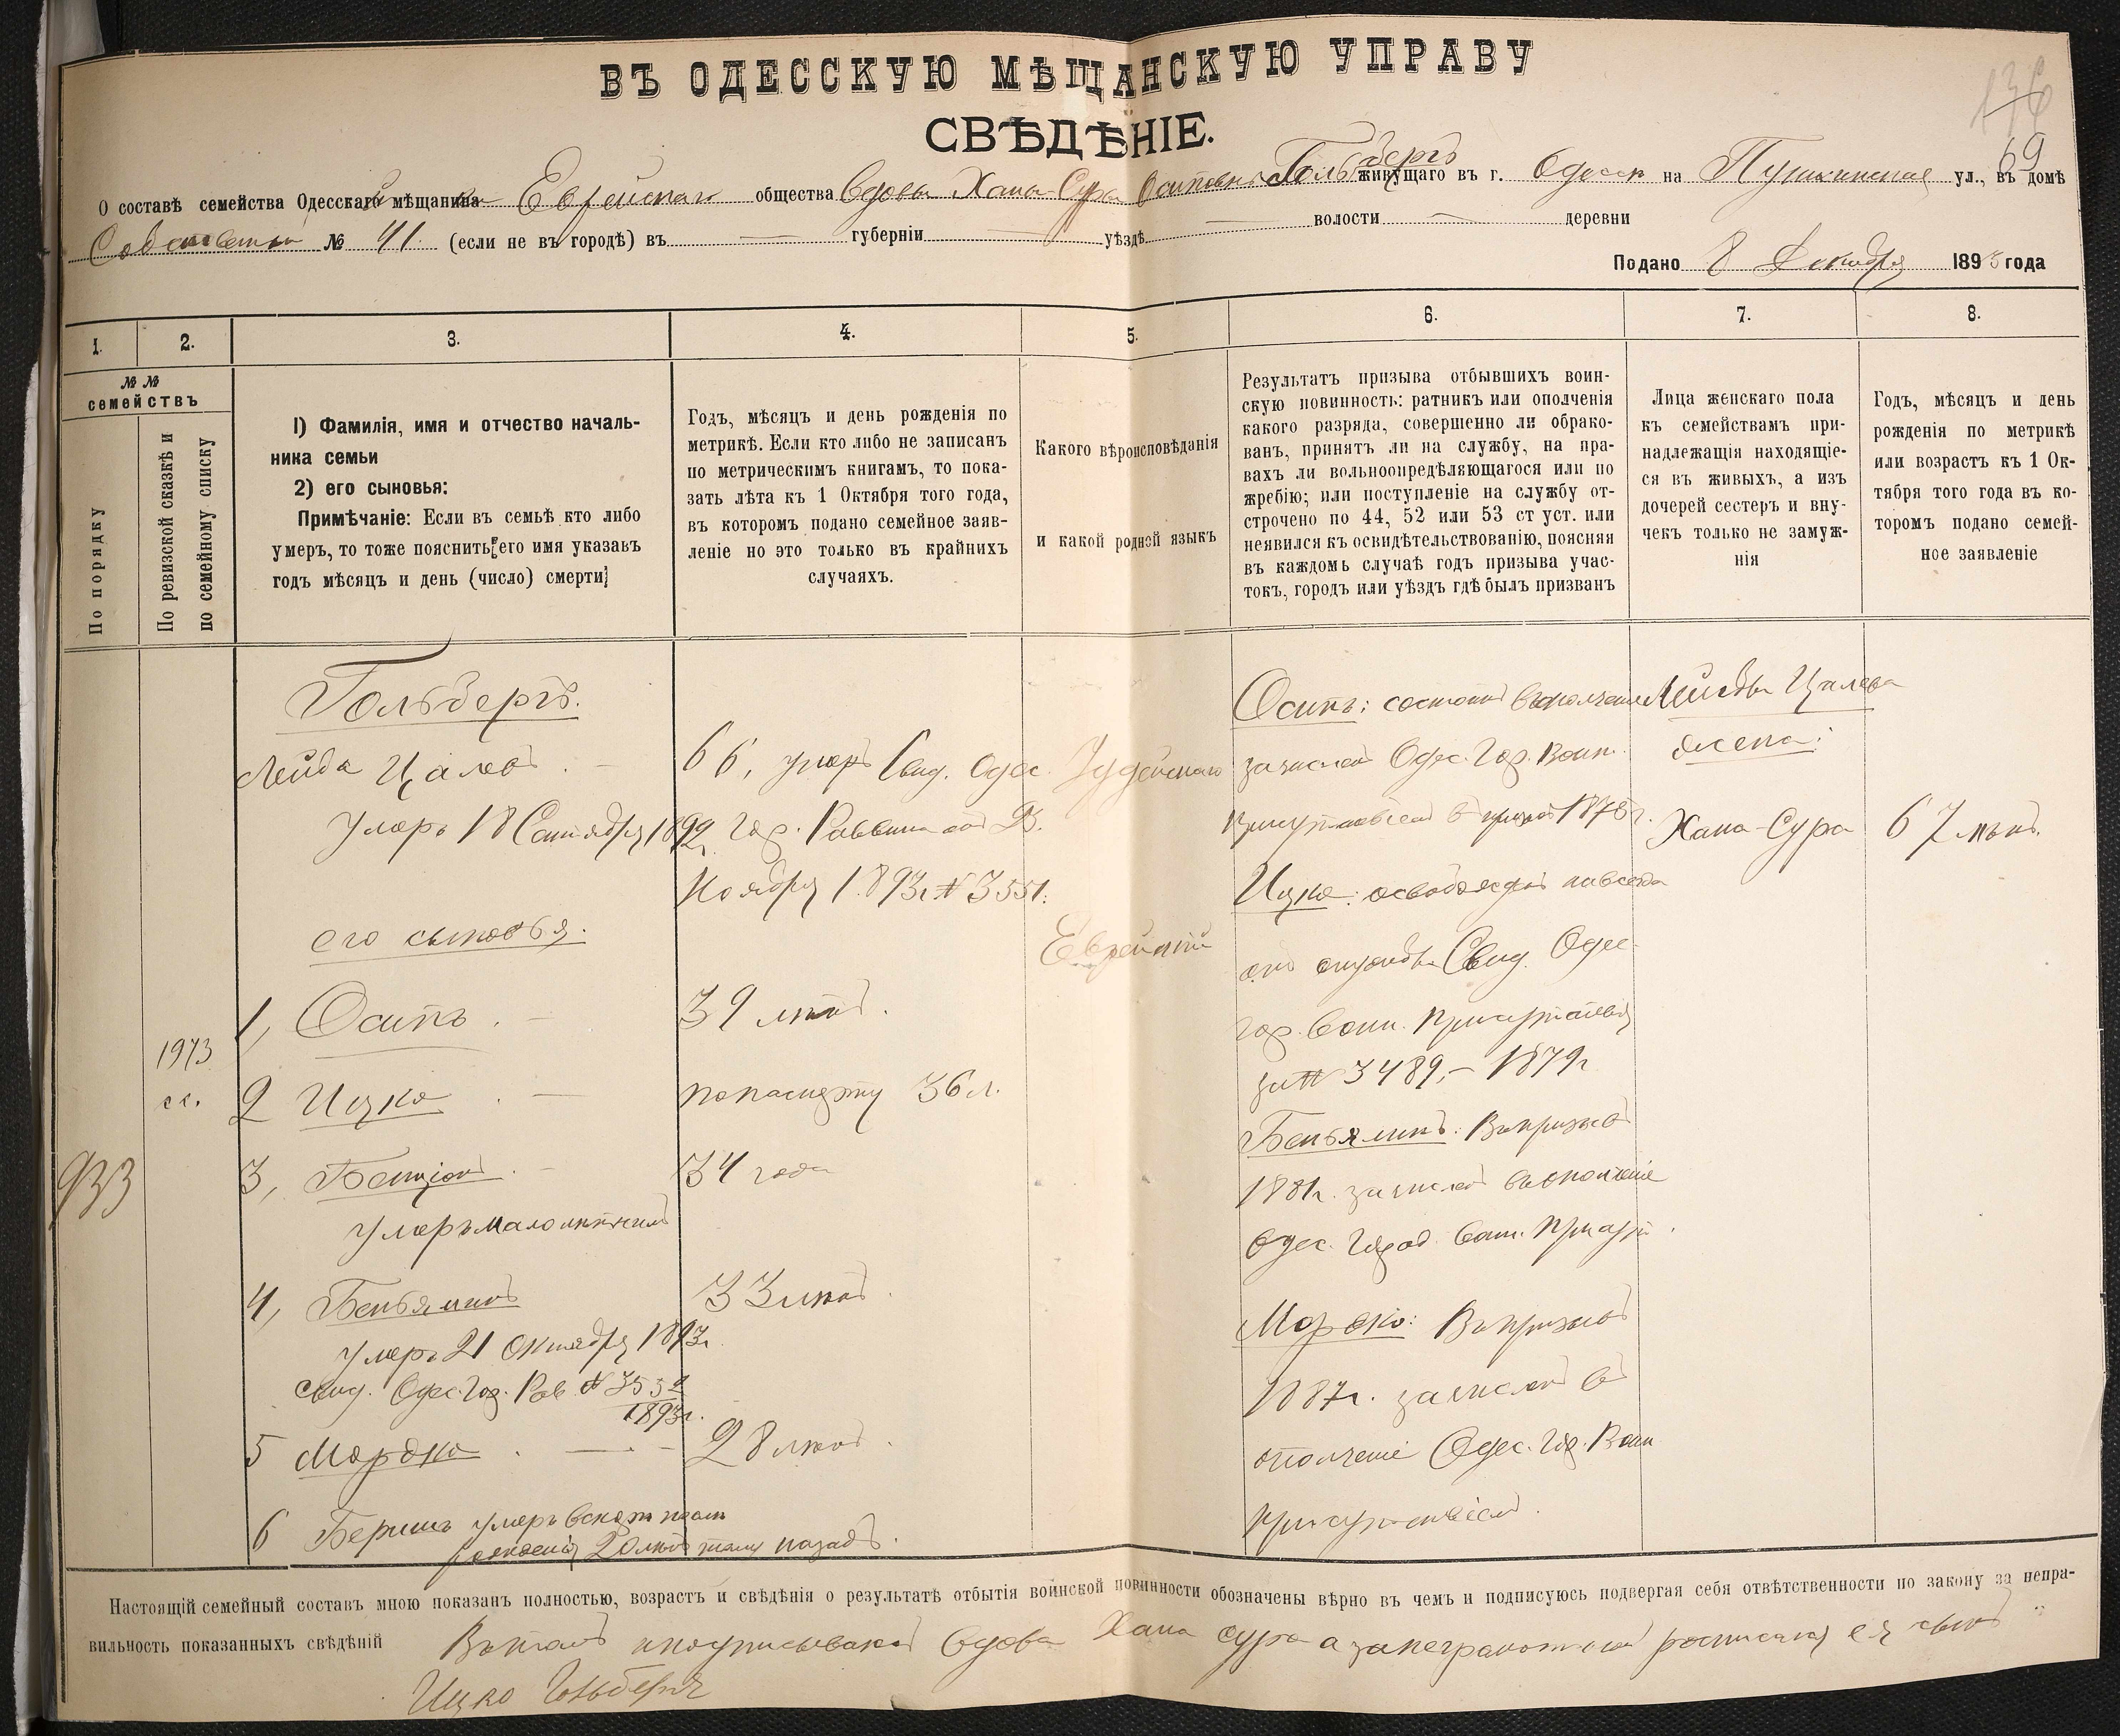 ВЪ ОДЕССКУЮ МѢЩАНСКУЮ УПРАВУ
СВѢДѢНІЕ.
136
69
О составѣ семейства Одесскаго мѣщанина Еврейскаго общества Вдовы Хана-Сура Осиповна Гольбергъ живущаго въ г. Одессѣ на Пушкинской ул., въ домѣ
Собственный № 41. (если не въ городѣ) въ — губерніи — уѣздѣ — волости — деревни
Подано 8 Декабря 1893 года
1. 2. 3. 4. 5. 6. 7. 8.
№ № семействъ
По порядку
По ревизской сказкѣ и
по семейному списку
1) Фамилія, имя и отчество началь-
ника семьи
2) его сыновья:
Примѣчаніе: Если въ семьѣ кто либо
умеръ, то тоже пояснить его имя указавъ
годъ мѣсяцъ и день (число) смерти
Годъ, мѣсяцъ и день рожденія по
метрикѣ. Если кто либо не записанъ
по метрическимъ книгамъ, то пока-
зать лѣта къ 1 Октября того года,
въ которомъ подано семейное заяв-
леніе но это только въ крайнихъ
случаяхъ.
Какого вѣроисповѣданія
и какой родной языкъ
Результатъ призыва отбывшихъ воин-
скую повинность: ратникъ или ополченія
какого разряда, совершенно ли обрако-
ванъ, принятъ ли на службу, на пра-
вахъ ли вольноопредѣляющагося или по
жребію; или поступленіе на службу от-
строчено по 44, 52 или 53 ст уст. или
неявился къ освидѣтельствованію, поясняя
въ каждомъ случаѣ годъ призыва учас-
токъ, городъ или уѣздъ гдѣ былъ призванъ
Лица женскаго пола
къ семействамъ при-
надлежащія находящіе-
ся въ живыхъ, а изъ
дочерей сестеръ и вну-
чекъ только не замуж-
нія
Годъ, мѣсяцъ и день
рожденія по метрикѣ
или возрастъ къ 1 Ок-
тября того года въ ко-
торомъ подано семей-
ное заявленіе
933
1973
сс.
Гольбергъ.
Лейба Цалевъ. —
Умеръ 18 Сентября 1892 г.
его сыновья.
1, Осипъ. —
2 Ицко. —
3, Бенціонъ. —
Умеръ малолѣтнимъ
4, Беньяминъ
Умеръ 21 Октября 1893 г.
Свид. Одес. Гор. Рав. № 3532
1893 г.
5 Мордко. —
6 Беришъ умеръ вскорѣ послѣ
рожденія 20 лѣтъ тому назадъ.
66, умеръ Свид. Одес.
Гор. Раввина отъ 23.
Ноября 1893 г № 3551.
39 лѣтъ.
по паспорту 36 л.
34 года
33 лѣтъ.
28 лѣтъ.
Іудейскаго
Еврейскій
Осипъ: состоитъ въ ополченіи
зачисленъ Одес. Гор. Воин.
Присутствіемъ въ призывъ 1875 г.
Ицко: освобожденъ навсегда
отъ службы Свид. Одес.
Гор. Воин. Присутствія
за № 3489, — 1879 г
Беньяминъ: Въ призывъ
1881 г. зачисленъ въ ополченіе
Одес. Город. Воин. Присут.
Мордко: Въ призывъ
1887 г. зачисленъ въ
ополченіе Одес. Гор. Воин
присутствіемъ.
Лейбы Цалева
жена:
Хана-Сура
67 лѣтъ.
Настоящій семейный составъ мною показанъ полностью, возрастъ и свѣдѣнія о результатѣ отбытія воинской повинности обозначены вѣрно въ чемъ и подписуюсь подвергая себя отвѣтственности по закону за непра-
вильность показанныхъ свѣдѣній Въ томъ и подписываюсь Вдова Хана Сура а за неграмотной росписался ея сынъ
Ицко Гольбергъ